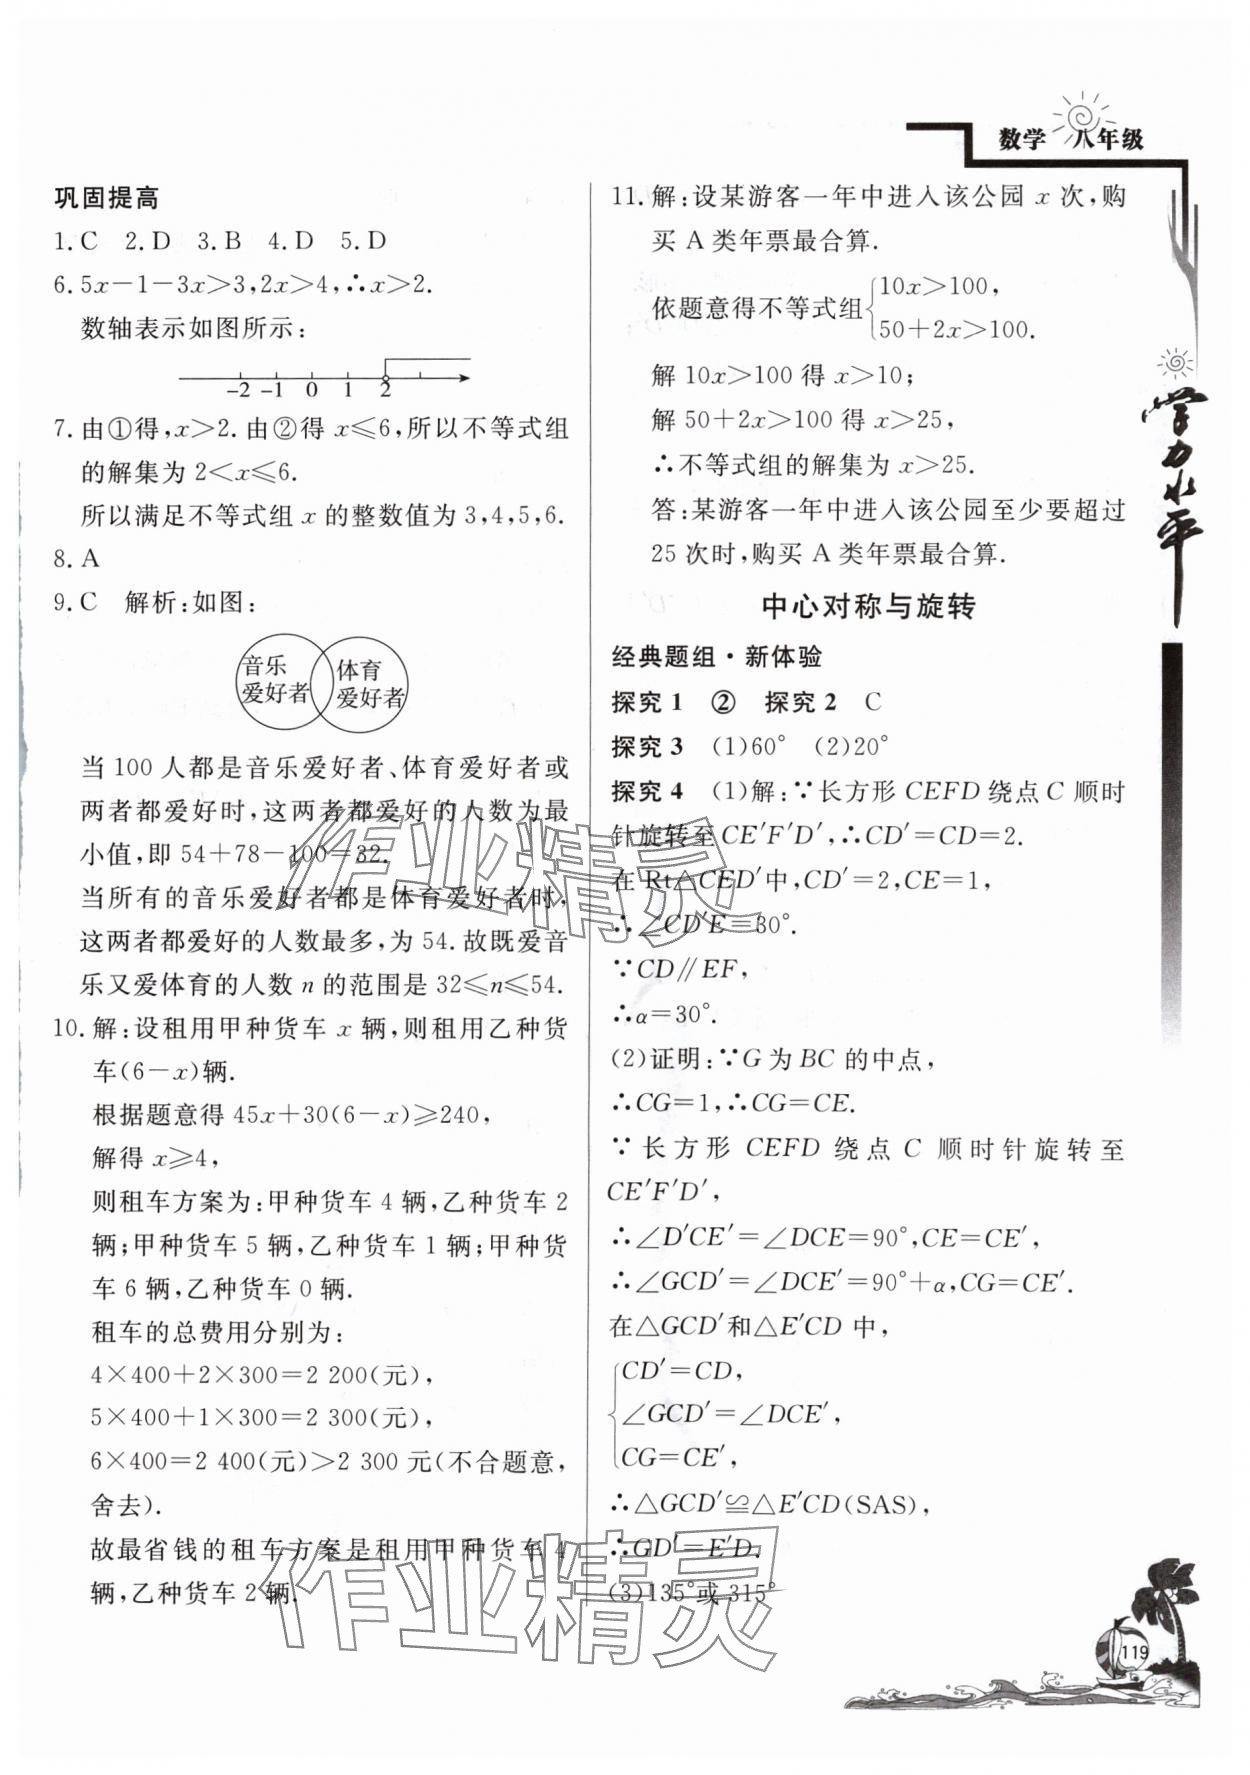 数学 八年级
巩固提高
1. C 2. D 3. B 4. D 5. D
6. 5x－1－3x＞3,2x＞4,∴x＞2.
数轴表示如图所示:
-2 -1 0 1 2
7. 由①得,x＞2. 由②得 x≤6,所以不等式组
的解集为 2＜x≤6.
所以满足不等式组 x 的整数值为 3,4,5,6.
8. A
9. C 解析:如图:
音乐 体育
爱好者 爱好者
当 100 人都是音乐爱好者、体育爱好者或
两者都爱好时,这两者都爱好的人数为最
小值,即 54＋78－100＝32.
当所有的音乐爱好者都是体育爱好者时,
这两者都爱好的人数最多,为 54. 故既爱音
乐又爱体育的人数 n 的范围是 32≤n≤54.
10. 解:设租用甲种货车 x 辆,则租用乙种货
车(6－x)辆.
根据题意得 45x＋30(6－x)≥240,
解得 x≥4,
则租车方案为:甲种货车 4 辆,乙种货车 2
辆;甲种货车 5 辆,乙种货车 1 辆;甲种货
车 6 辆,乙种货车 0 辆.
租车的总费用分别为:
4×400＋2×300＝2 200(元),
5×400＋1×300＝2 300(元),
6×400＝2 400(元)＞2 300 元(不合题意,
舍去).
故最省钱的租车方案是租用甲种货车 4
辆,乙种货车 2 辆.
11. 解:设某游客一年中进入该公园 x 次,购
买 A 类年票最合算.
依题意得不等式组{10x＞100,
50＋2x＞100.
解 10x＞100 得 x＞10;
解 50＋2x＞100 得 x＞25,
∴不等式组的解集为 x＞25.
答:某游客一年中进入该公园至少要超过
25 次时,购买 A 类年票最合算.
中心对称与旋转
经典题组·新体验
探究 1 ② 探究 2 C
探究 3 (1)60° (2)20°
探究 4 (1)解:∵长方形 CEFD 绕点 C 顺时
针旋转至 CE′F′D′,∴CD′＝CD＝2.
在 Rt△CED′中,CD′＝2,CE＝1,
∴∠CD′E＝30°.
∵CD∥EF,
∴α＝30°.
(2)证明:∵G 为 BC 的中点,
∴CG＝1,∴CG＝CE.
∵长方形 CEFD 绕点 C 顺时针旋转至
CE′F′D′,
∴∠D′CE′＝∠DCE＝90°,CE＝CE′,
∴∠GCD′＝∠DCE′＝90°＋α,CG＝CE′.
在△GCD′和△E′CD 中,
{CD′＝CD,
∠GCD′＝∠DCE′,
CG＝CE′,
∴△GCD′≌△E′CD(SAS),
∴GD′＝E′D.
(3)135°或 315°
学力水平
119
作业精灵
作业精灵